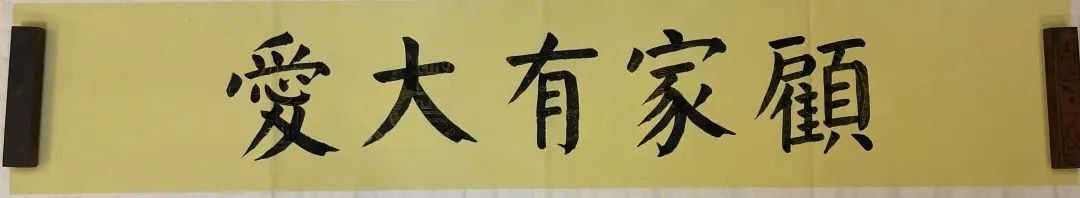 顧家有大愛